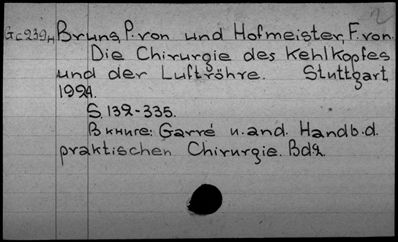 2
Gc239н Bruns, P. von und Hofmeister, F. von.
Die Chirurgie des Kehlkopfes
und der Luftröhre. Stuttgart,
1924.
S. 132-335.
В книге: Garré u. and. Handb. d.
praktischen Chirurgie. Bd2.